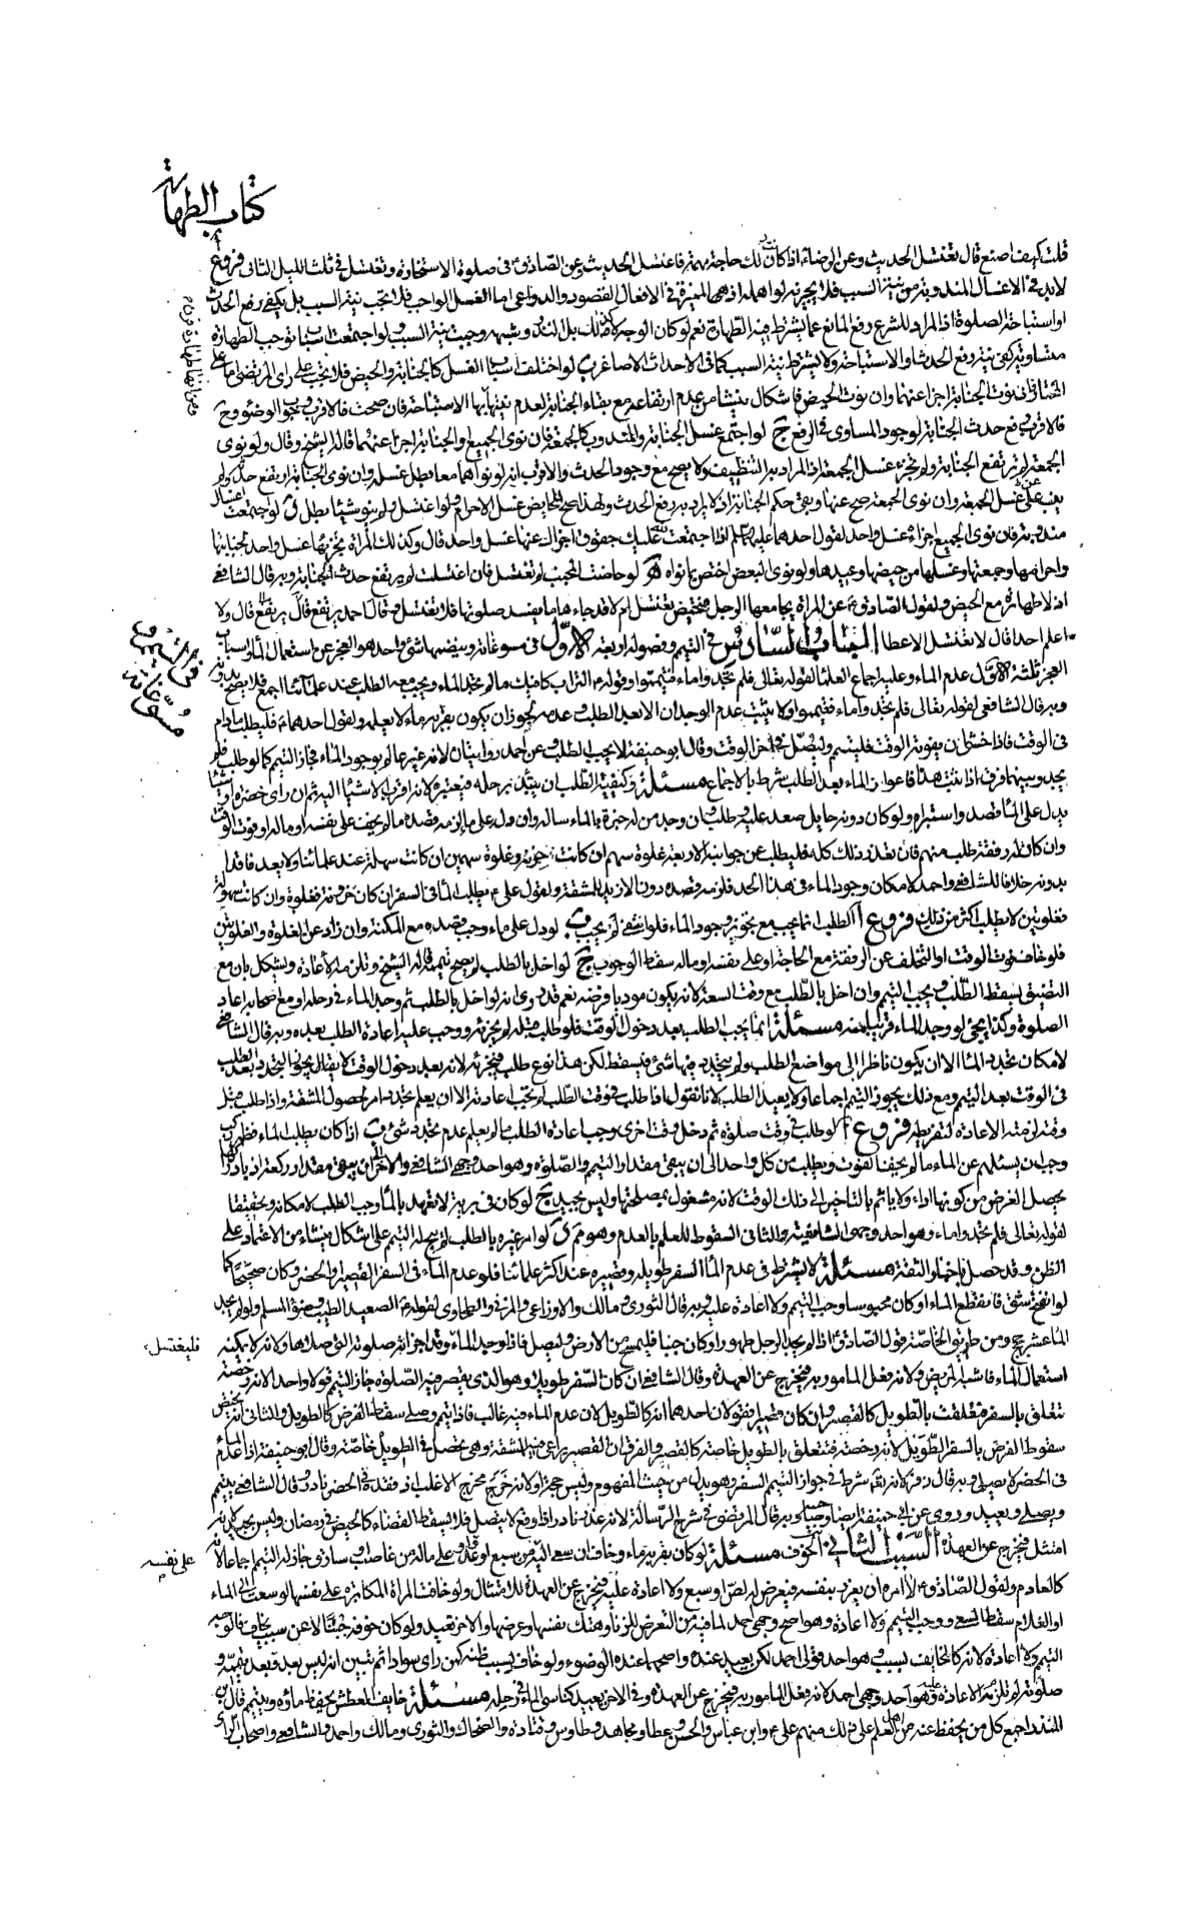 كتاب الطهارة
قلت كيف اصنع قال تغتسل الحديث وعن الرضا ع اذا كان لك حاجة مهمة فاغتسل الحديث وعن الصادق ع في صلوة الاستخارة وتغتسل في ثلث الليل الثاني فروع
لابد في الاغسال المندوبة من نية السبب فلا يجزيه لو اهمله اذ هي المميزة في الافعال لقصود والدواعي اما الغسل الواجب فلا يجب نية السبب بل يكفي رفع الحدث
او استباحة الصلوة اذ المراد للشرع رفع المانع عما يشترط فيه الطهارة نعم لو كان الوجه كذلك بل الندب وشبهه وجبت نية السبب ب لو اجتمعت اسباب توجب الطهارة
متساوية كفى نية رفع الحدث او الاستباحة ولا يشترط نية السبب كما في الاحداث الاصاغر لو اختلف اسباب الغسل كالجنابة والحيض فلا يجب على راي المرتضى اما على
الثاني فان نوت الجنابة اجزا عنهما وان نوت الحيض فاشكال ينشا من عدم ارتفاعه مع بقاء الجنابة لعدم نيتها بها الاستباحة فان صحت فالاقرب وجوب الوضوء وح
فالاقرب رفع حدث الجنابة لوجود المساوي في الرفع ج لو اجتمع غسل الجنابة والمندوب كالجمعة فان نوى الجميع او الجنابة اجزا عنهما قاله الشيخ وقال ولو نوى
الجمعة لم ترتفع الجنابة ولم تجزئ غسل الجمعة اذ المراد به التنظيف ولا يصح مع وجود الحدث والاقرب انه لو نواهما معا بطل غسله وان نوى الجنابة ارتفع حدثه ولم
يثب على غسل الجمعة وان نوى الجمعة صح عنها وبقي حكم الجنابة اذ لا يراد به رفع الحدث ولهذا صح للحايض غسل الاحرام ولو اغتسل ولم ينو شيئا بطل د لو اجتمعت اغسال
مندوبة فان نوى الجميع اجزاه غسل واحد لقول احدهما عليهما السلم اذا اجتمعت لله عليك حقوق اجزاك عنها غسل واحد قال وكذلك المراة يجزيها غسل واحد لجنابتها
واحرامها وجمعتها وغسلها من حيضها وعيدها ولو نوى البعض اختص بما نواه ه لو حاضت الجنب لم تغتسل فان اغتسلت لم يرتفع حدث الجنابة وبه قال الشافعي
اذ لا طهارة مع الحيض ولقول الصادق ع عن المراة يجامعها الرجل فتحيض تغتسل ام لا قد جاءها ما يفسد صلوتها فلا تغتسل وقال احمد يرتفع قال ولا
اعلم احدا قال لا تغتسل الا عطا الباب السادس في التيمم وفصوله اربعة الاول في مسوغاته ويضمها شئ واحد هو العجز عن استعمال الماء واسباب
العجز ثلثة الاول عدم الماء وعليه اجماع العلماء لقوله تعالى فلم تجدوا ماء فتيمموا وقوله ع التراب كافيك ما لم تجد الماء ويجب معه الطلب عند علمائنا اجمع فلا يصح بدونه
وبه قال الشافعي لقوله تعالى فلم تجدوا ماء فتيمموا ولا يثبت عدم الوجدان الا بعد الطلب وعدمه لجواز ان يكون بقربه ماء لا يعلمه ولقول احدهما ع فليطلب ما دام
في الوقت فاذا خشي ان يفوته الوقت فليتيمم وليصل في اخر الوقت وقال ابو حنيفة لا يجب الطلب وعن احمد روايتان لانه غير عالم بوجود الماء فجاز التيمم كما لو طلب فلم
يجد وبينهما فرق اذا ثبت هذا فاعواز الماء بعد الطلب شرط بالاجماع مسئلة وكيفية الطلب ان يبتدئ برحله فيعتبره لانه اقرب الاشياء اليه ثم ان راى خضرة او شيئا
يدل على الماء قصده واستبراه ولو كان دونه حايل صعد عليه وطلب وان وجد من له خبرة بالماء ساله وان دل على ماء لزمه قصده ما لم يخف على نفسه او ماله او فوت الوقت
وان كان له رفقة طلب منهم فان تعذر ذلك كله فليطلب عن جوانبه الاربعة غلوة سهم ان كانت حزنة وغلوة سهمين ان كانت سهلة عند علمائنا ولا يعد فاقدا
بدونه خلافا للشافعي واحمد لامكان وجود الماء في هذا الحد فلزمه قصده دون الازيد للمشقة ولقول علي ع يطلب الماء في السفر ان كان حزونة فغلوة وان كانت سهولة
فغلوتين لا يطلب اكثر من ذلك فروع ا الطلب انما يجب مع تجويز وجود الماء فلو انتفى لم يجب ب لو دل على ماء وجب قصده مع المكنة وان زاد عن الغلوة والغلوتين
فلو خاف فوت الوقت او التخلف عن الرفقة مع الحاجة او على نفسه او ماله سقط الوجوب ج لو اخل بالطلب لم يصح تيممه قاله الشيخ وتلزمه الاعادة ويشكل بان مع
التضيق يسقط الطلب ويجب التيمم وان اخل بالطلب مع وقت السعة لانه يكون موديا فرضه نعم قد روى انه لو اخل بالطلب ثم وجد الماء في رحله او مع اصحابه اعاد
الصلوة وكذا يجئ لو وجد الماء قريبا منه مسئلة انما يجب الطلب بعد دخول الوقت فلو طلب قبله لم يجزئه ووجب عليه اعادة الطلب بعده وبه قال الشافعي
لامكان تجدد الماء الا ان يكون ناظرا الى مواضع الطلب ولم يتجدد فيها شئ فيسقط لكن هذا نوع طلب فيجزئه لانه بعد دخول الوقت لا يقال يجوز التجدد بعد الطلب
في الوقت بعد التيمم ومع ذلك يجوز التيمم اجماعا ولا يعيد الطلب لانا نقول اذا طلب في وقت الطلب لم يجب اعادته الا ان يعلم تجدد امر لحصول المشقة واذا طلب قبل
وقته لزمته الاعادة لتفريطه فروع ا لو طلب في وقت صلوة ثم دخل وقت اخرى وجب اعادة الطلب ما لم يعلم عدم تجدد شئ ب اذا كان يطلب الماء فظهر ركب
وجب ان يسئلهم عن الماء ما لم يخف الفوت ويطلب من كل واحد الى ان يبقى مقدار التيمم والصلوة وهو احد وجهي الشافعي والاخر الى ان يبقى مقدار ركعة اذ بادراكها
يحصل الغرض من كونها اداء ولا ياثم بالتاخير الى ذلك الوقت لانه مشغول بمصلحتها وليس بجيد ج لو كان في برية لا تعهد بالماء وجب الطلب لامكانه وتحقيقا
لقوله تعالى فلم تجدوا ماء وهو احد وجهي الشافعية والثاني السقوط للعلم بالعدم وهو قوي د لو امر غيره بالطلب لم يبح له التيمم على اشكال ينشاء من الاعتماد على
الظن وقد حصل باخبار الثقة مسئلة لا يشترط في عدم الماء السفر طويله وقصيره عند اكثر علمائنا فلو عدم الماء في السفر القصير او الحضر وكان صحيحا كما
لو انفتح بثق فانقطع الماء او كان محبوسا وجب التيمم ولا اعادة عليه وبه قال الثوري ومالك والاوزاعي والمزني والطحاوي لقوله ع الصعيد الطيب وضوء المسلم ولو لم يجد
الماء عشر حجج ومن طريق الخاصة قول الصادق ع اذا لم يجد الرجل طهورا وكان جنبا فليمسح من الارض وليصل فاذا وجد الماء وقد اجزاته صلوته التي صلاها ولانه لا يمكنه
استعمال الماء فاشبه المريض ولانه فعل المامور به فيخرج عن العهدة وقال الشافعي ان كان السفر طويلا وهو الذي يقصر فيه الصلوة جاز التيمم قولا واحدا لانه رخصة
تتعلق بالسفر فتعلقت بالطويل كالقصر وان كان قصيرا فقولان احدهما انه كالطويل لان عدم الماء فيه غالب فاذا تيمم وصلى سقط الفرض كالطويل والثاني انه يختص
سقوط الفرض بالسفر الطويل لانه رخصة فتتعلق بالطويل خاصة كالقصر والفرق ان القصر يراعى فيه المشقة وهي تحصل في الطويل خاصة وقال ابو حنيفة اذا عدم الماء
في الحضر لا يصلي وبه قال زفر لانه تع شرط في جواز التيمم السفر وهو يدل من حيث المفهوم وليس حجة او لانه خرج مخرج الاغلب اذ فقده في الحضر نادر وقال الشافعي يتيمم
ويصلي ويعيد وروي عن ابي حنيفة ايضا وبه قال المرتضى في شرح الرسالة لانه عذر نادر اذا وقع لا يتصل فلا يسقط القضاء كالحيض في رمضان وليس بجيد لانه
امتثل فيخرج عن العهدة السبب الثاني الخوف مسئلة لو كان بقربه ماء وخاف ان سعى اليه من سبع او عدو او على ماله من غاصب او سارق جاز له التيمم اجماعا لانه
كالعادم ولقول الصادق ع لا امره ان يغرر بنفسه فيعرض له لص او سبع ولا اعادة عليه فيخرج عن العهدة للامتثال ولو خافت المراة المكابرة على نفسها لو سعت الى الماء
او الغلام سقط السعي ووجب التيمم ولا اعادة وهو اصح وجهي احمد لما فيه من التعرض للزنا وهتك نفسها وعرضها والاخر تعيد ولو كان خوفه جبنا لا عن سبب يخاف فالوجه
التيمم ولا اعادة لانه كالخايف لسبب وهو احد قولي احمد لكن يعيد عنده واصحهما عنده الوضوء ولو خاف بسبب ظنه كمن راى سوادا ثم تبين انه ليس بعدو بعد تيممه و
صلوته لم تلزمه الاعادة وهو احد وجهي احمد لانه فعل المامور به فيخرج عن العهدة وفي الاخر يعيد كناسي الماء في رحله مسئلة خايف العطش يحفظ ماءه ويتيمم قال ابن
المنذر اجمع كل من يحفظ عنه من اهل العلم على ذلك منهم علي ع وابن عباس والحسن وعطا ومجاهد وطاوس وقتادة والضحاك والثوري ومالك واحمد والشافعي واصحاب الراي
فليغتسل
على نفسه